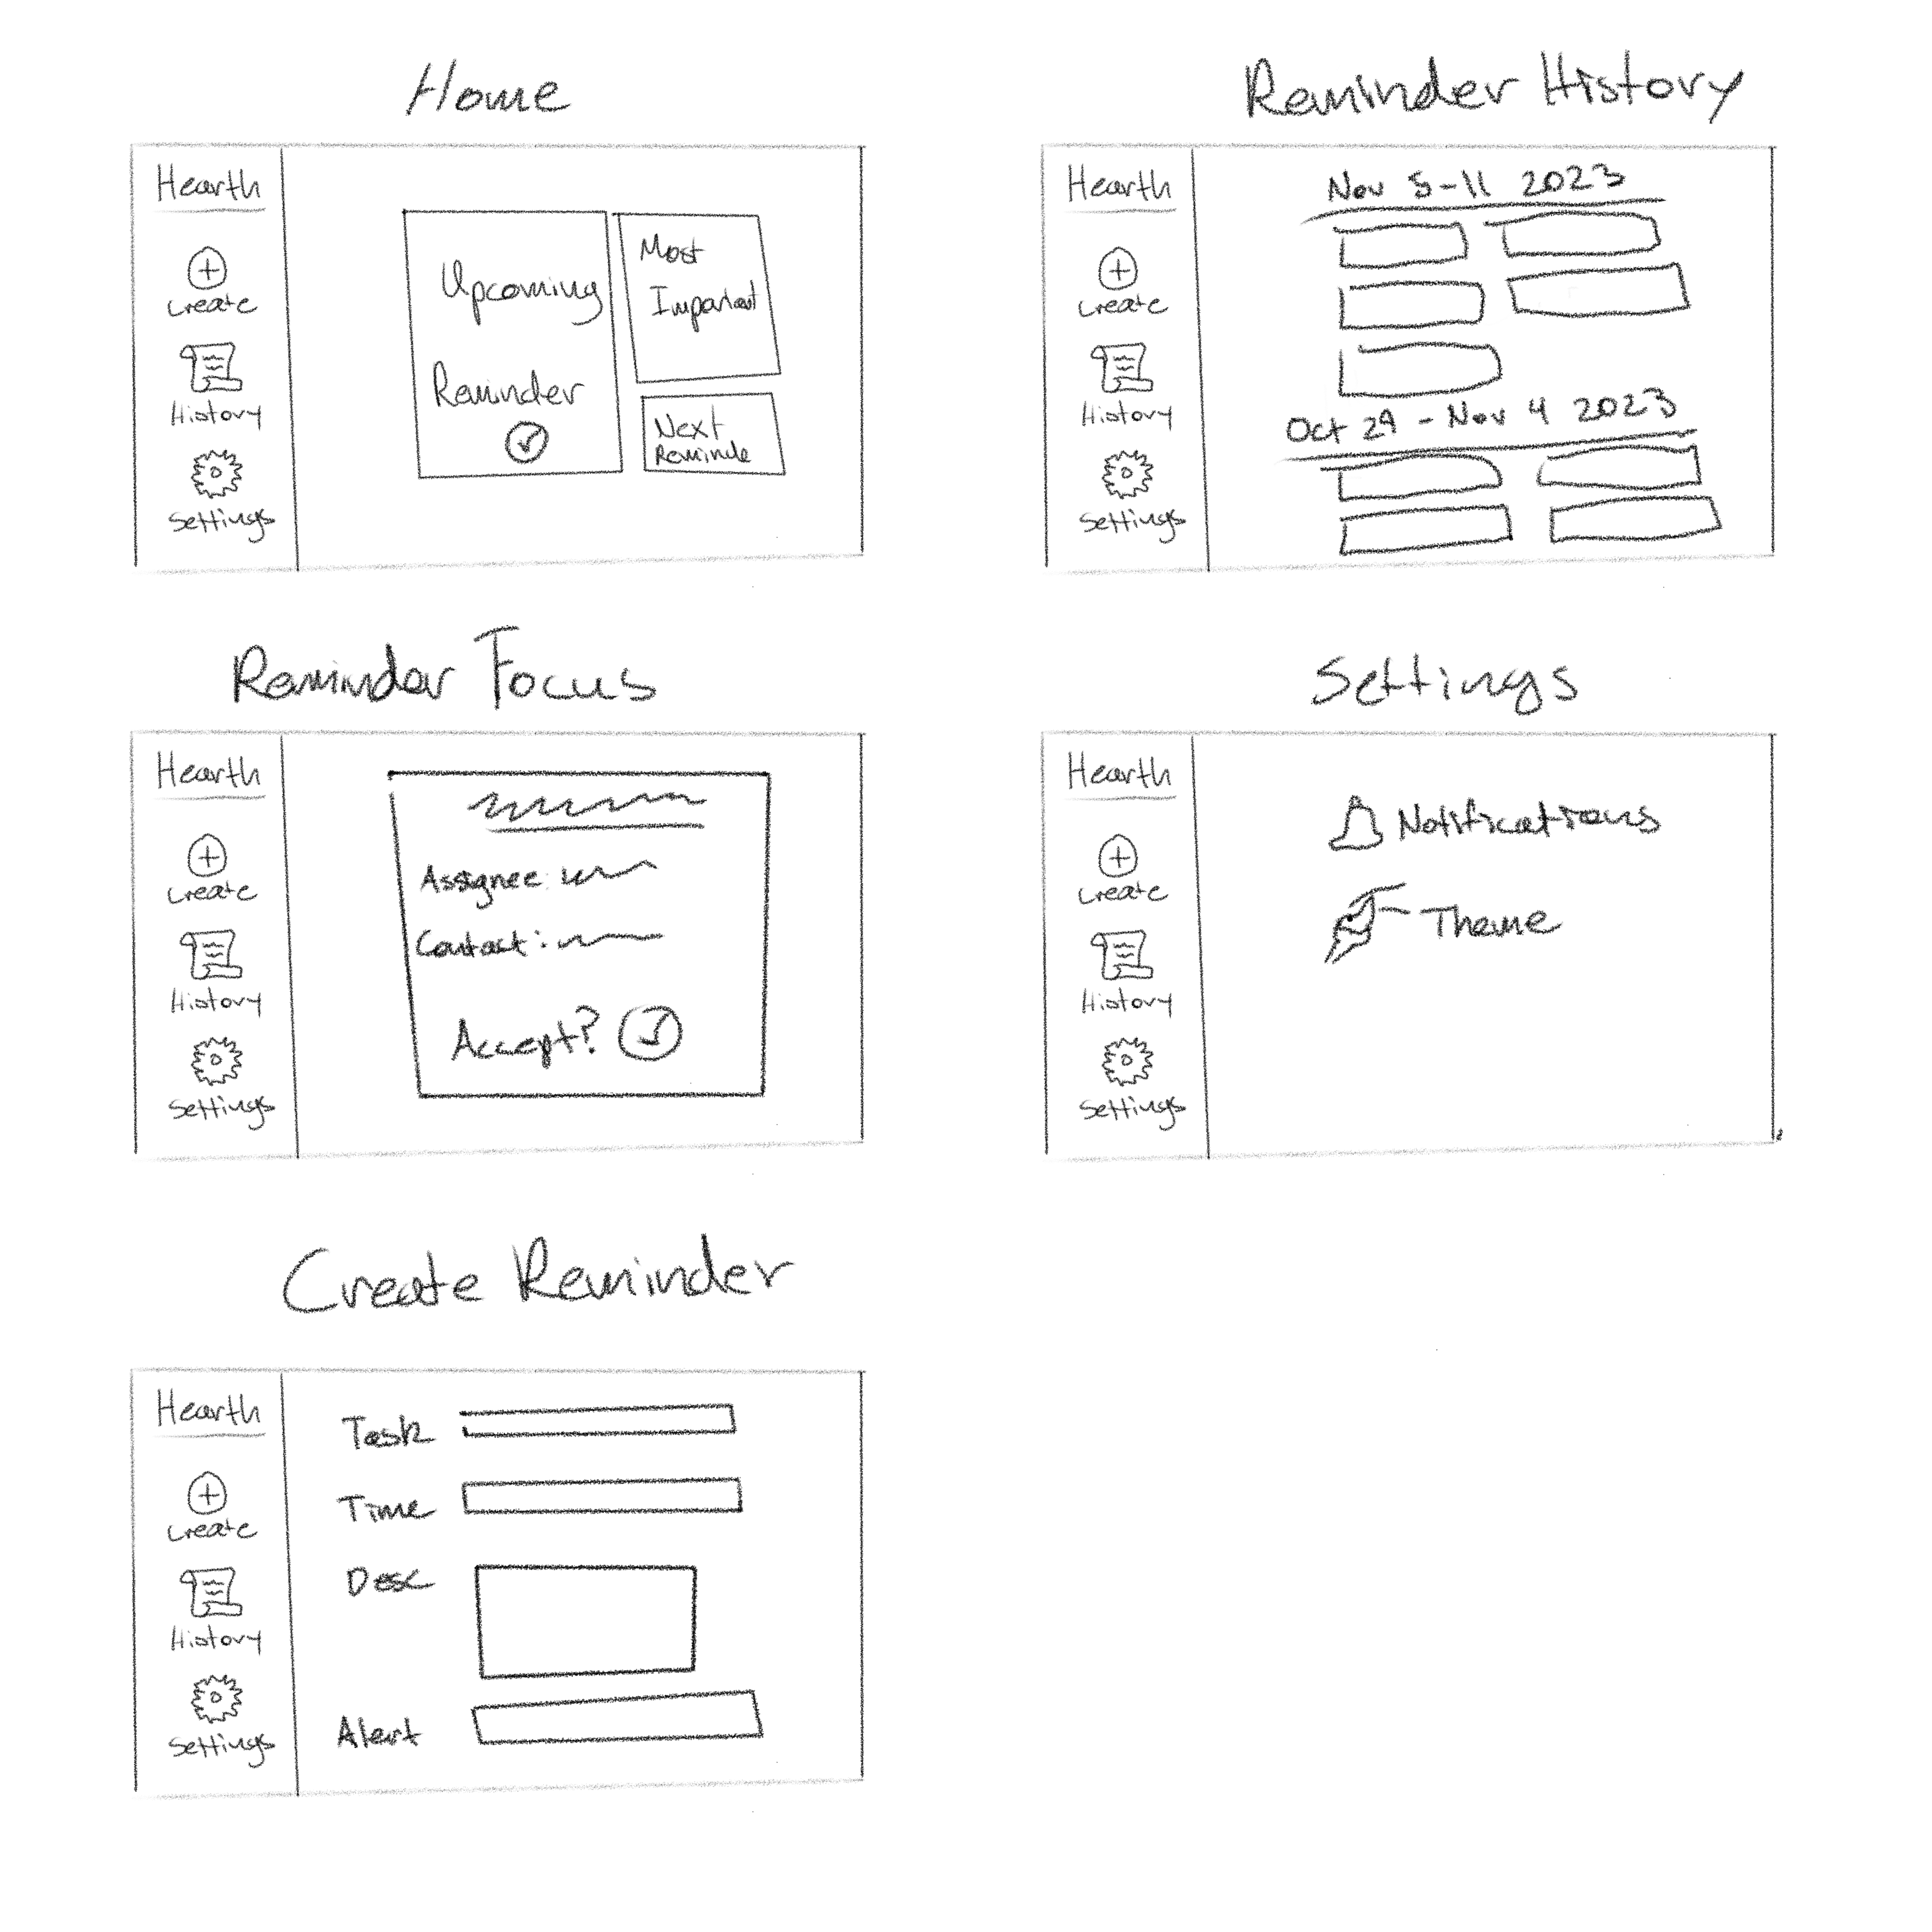 Home
Hearth
Create
History
Settings
Upcoming
Reminder
Most
Important
Next
Reminde
Reminder History
Hearth
Create
History
Settings
Nov 5-11 2023
Oct 29 - Nov 4 2023
Reminder Focus
Hearth
Create
History
Settings
Assignee:
Contact:
Accept?
Settings
Hearth
Create
History
Settings
Notifications
Theme
Create Reminder
Hearth
Create
History
Settings
Task
Time
Desc
Alert